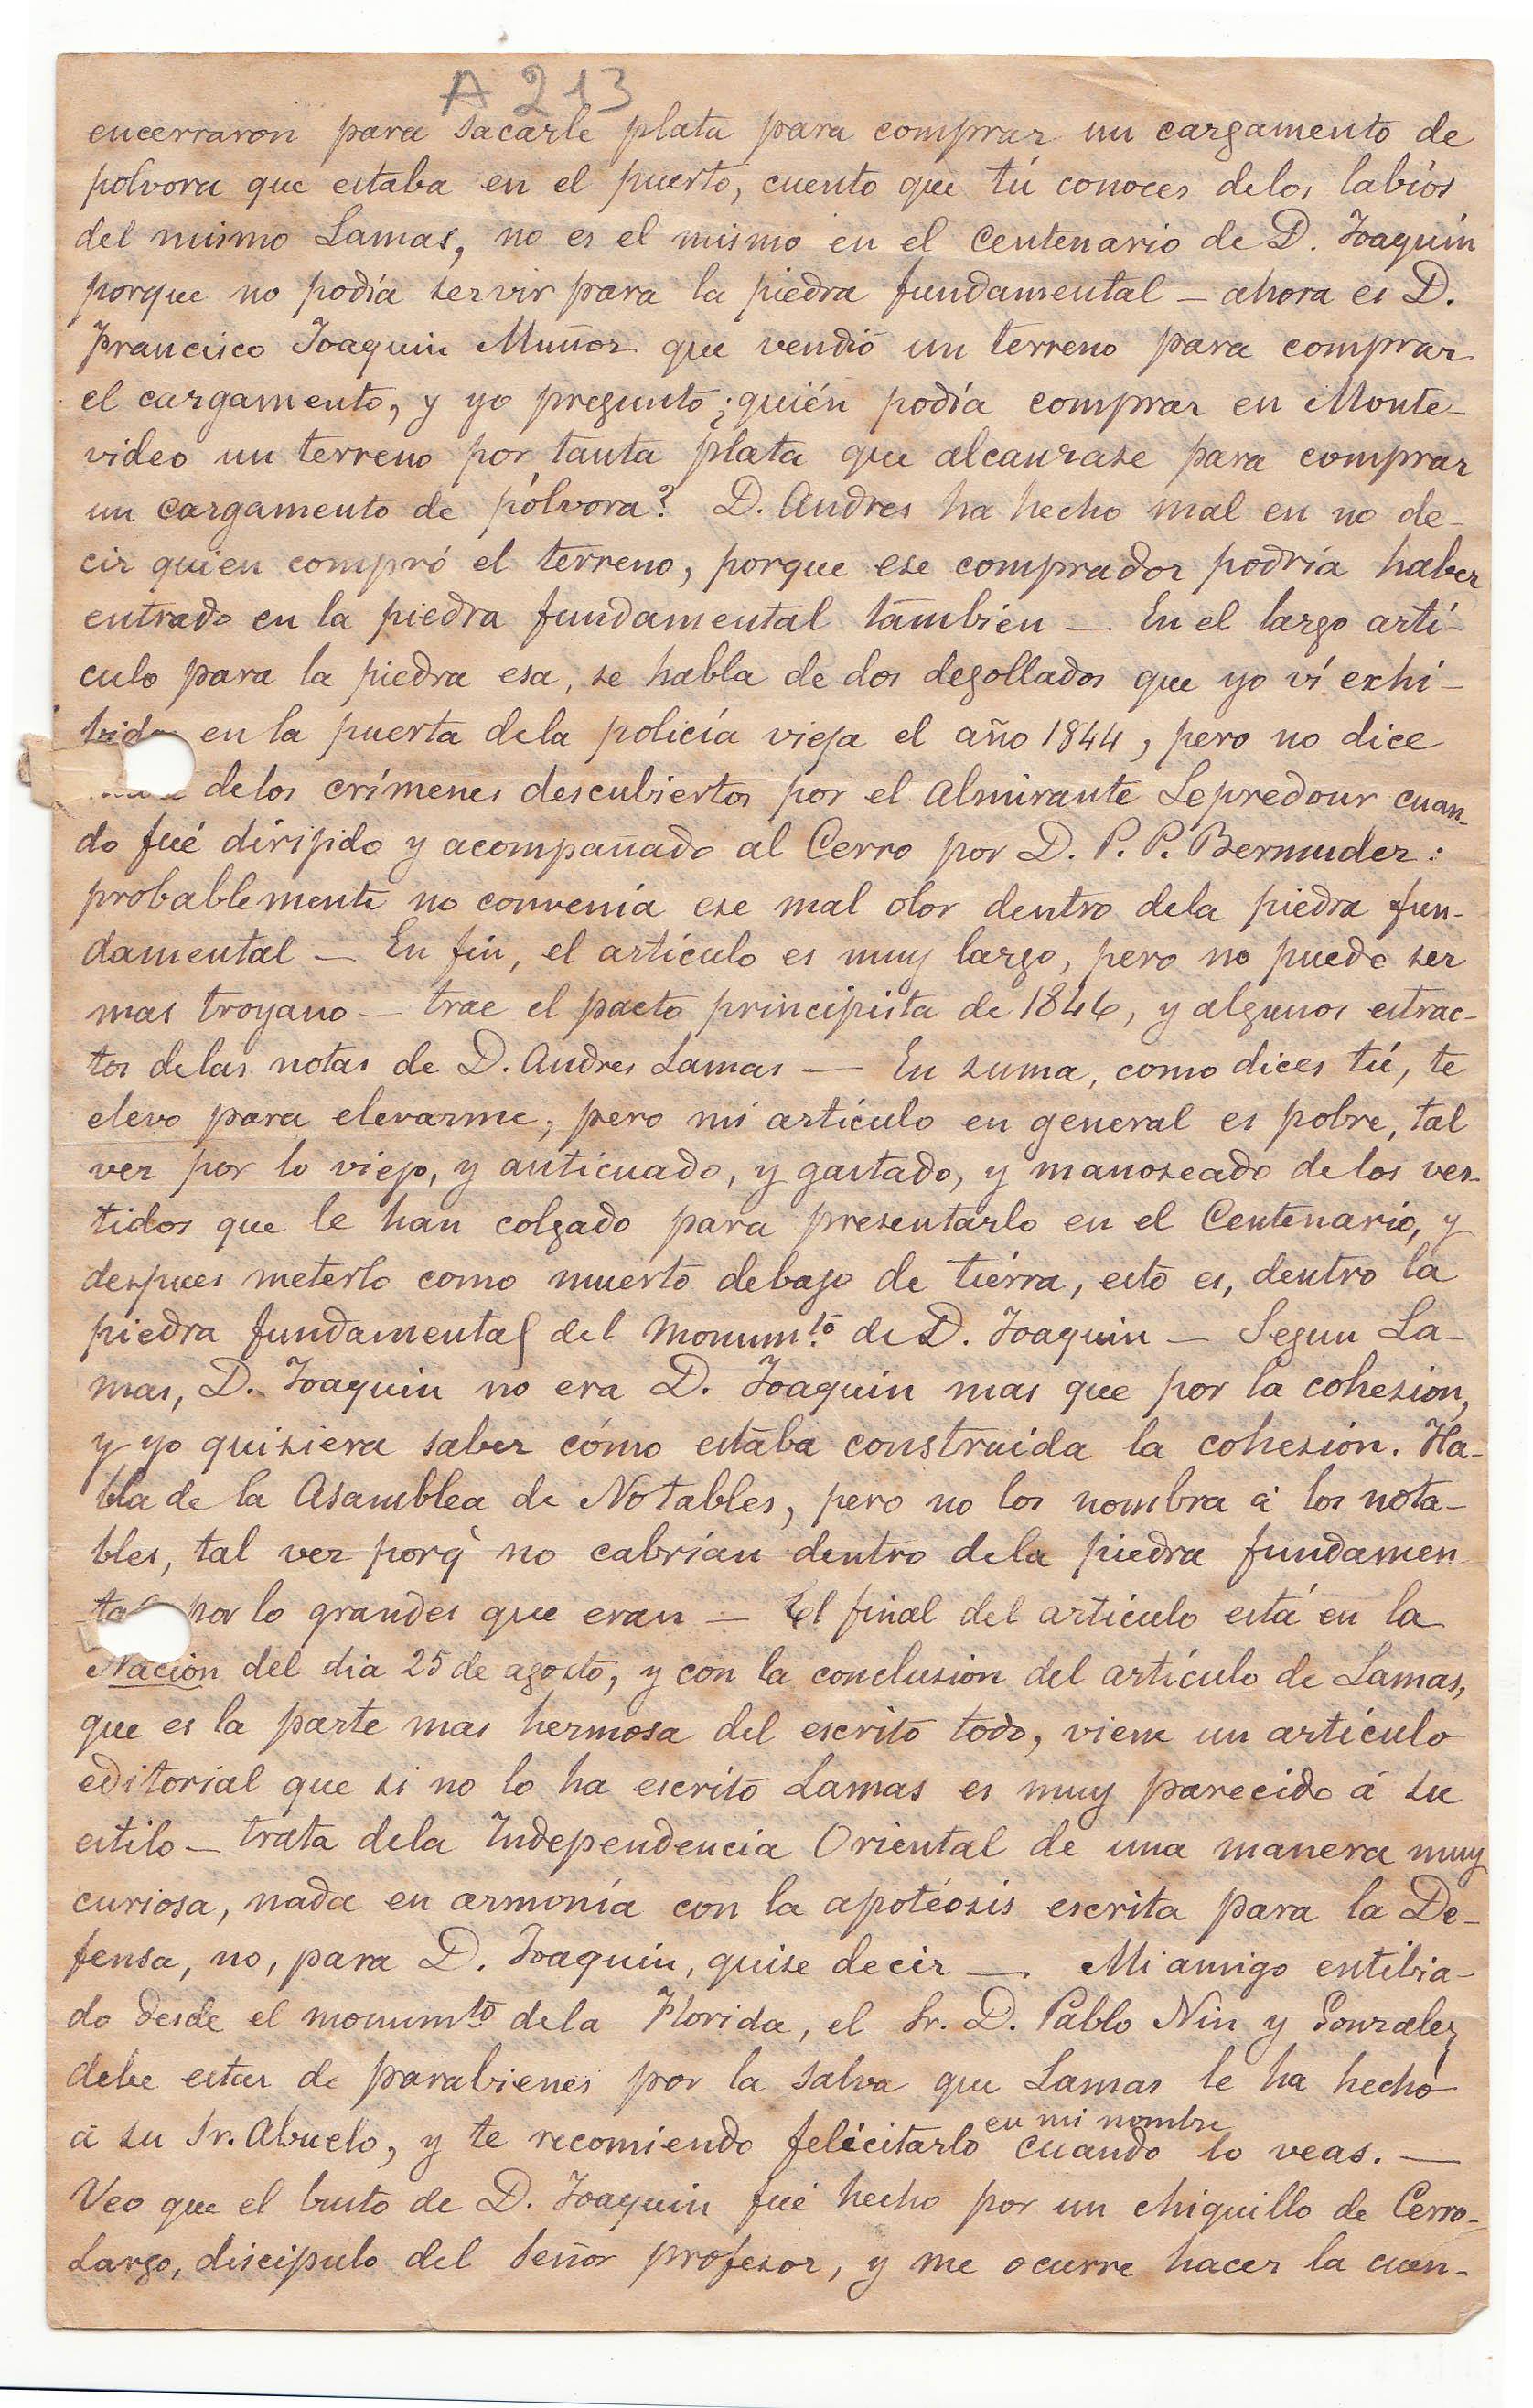 A 213
encerraron para sacarle plata para comprar un cargamento de
polvora que estaba en el puerto, cuento que tú conoces delos labios
del mismo Lamas, no es el mismo en el Centenario de D. Joaquin
porque no podía servir para la piedra fundamental — ahora es D.
Francisco Joaquin Muñoz que vendió un terreno para comprar
el cargamento, y yo pregunto ¿quién podía comprar en Monte-
video un terreno por tanta plata que alcanzase para comprar
un cargamento de pólvora? D. Andres ha hecho mal en no de-
cir quien compró el terreno, porque ese comprador podría haber
entrado en la piedra fundamental tambien — En el largo artí-
culo para la piedra esa, se habla de dos degollados que yo ví exhi-
en la puerta dela policía vieja el año 1844, pero no dice
delos crímenes descubiertos por el Almirante Lepredour cuan-
do fué dirijido y acompañado al Cerro por D. P. P. Bermudez:
probablemente no convenía ese mal olor dentro dela piedra fun-
damental — En fin, el artículo es muy largo, pero no puede ser
mas troyano — trae el pacto principista de 1846, y algunos estrac-
tos delas notas de D. Andres Lamas — En suma, como dices tú, te
elevo para elevarme; pero mi artículo en general es pobre, tal
vez por lo viejo, y anticuado, y gastado, y manoseado de los ves-
tidos que le han colgado para presentarlo en el Centenario, y
despues meterlo como muerto debajo de tierra, esto es, dentro la
piedra fundamental del Monum.to de D. Joaquin — Segun La-
mas, D. Joaquin no era D. Joaquin mas que por la cohesion,
y yo quisiera saber cómo estaba construida la cohesión. Ha-
bla de la Asamblea de Notables, pero no los nombra á los nota-
bles, tal vez porq' no cabrían dentro dela piedra fundamen
por lo grandes que eran — El final del artículo está en la
Nación del dia 25 de agosto, y con la conclusion del artículo de Lamas,
que es la parte mas hermosa del escrito todo, viene un artículo
editorial que si no lo ha escrito Lamas es muy parecido á su
estilo — trata dela Independencia Oriental de una manera muy
curiosa, nada en armonía con la apoteósis escrita para la De-
fensa, no, para D. Joaquin, quise decir — Mi amigo entibia-
do desde el monum.to dela Florida, el Sr. D. Pablo Nin y Gonzalez
debe estar de parabienes por la salva que Lamas le ha hecho
en mi nombre
á su Sr. Abuelo, y te recomiendo felicitarlo cuando lo veas. —
Veo que el busto de D. Joaquin fué hecho por un chiquillo de Cerro-
Largo, discipulo del Señor profesor, y me ocurre hacer la cuen-